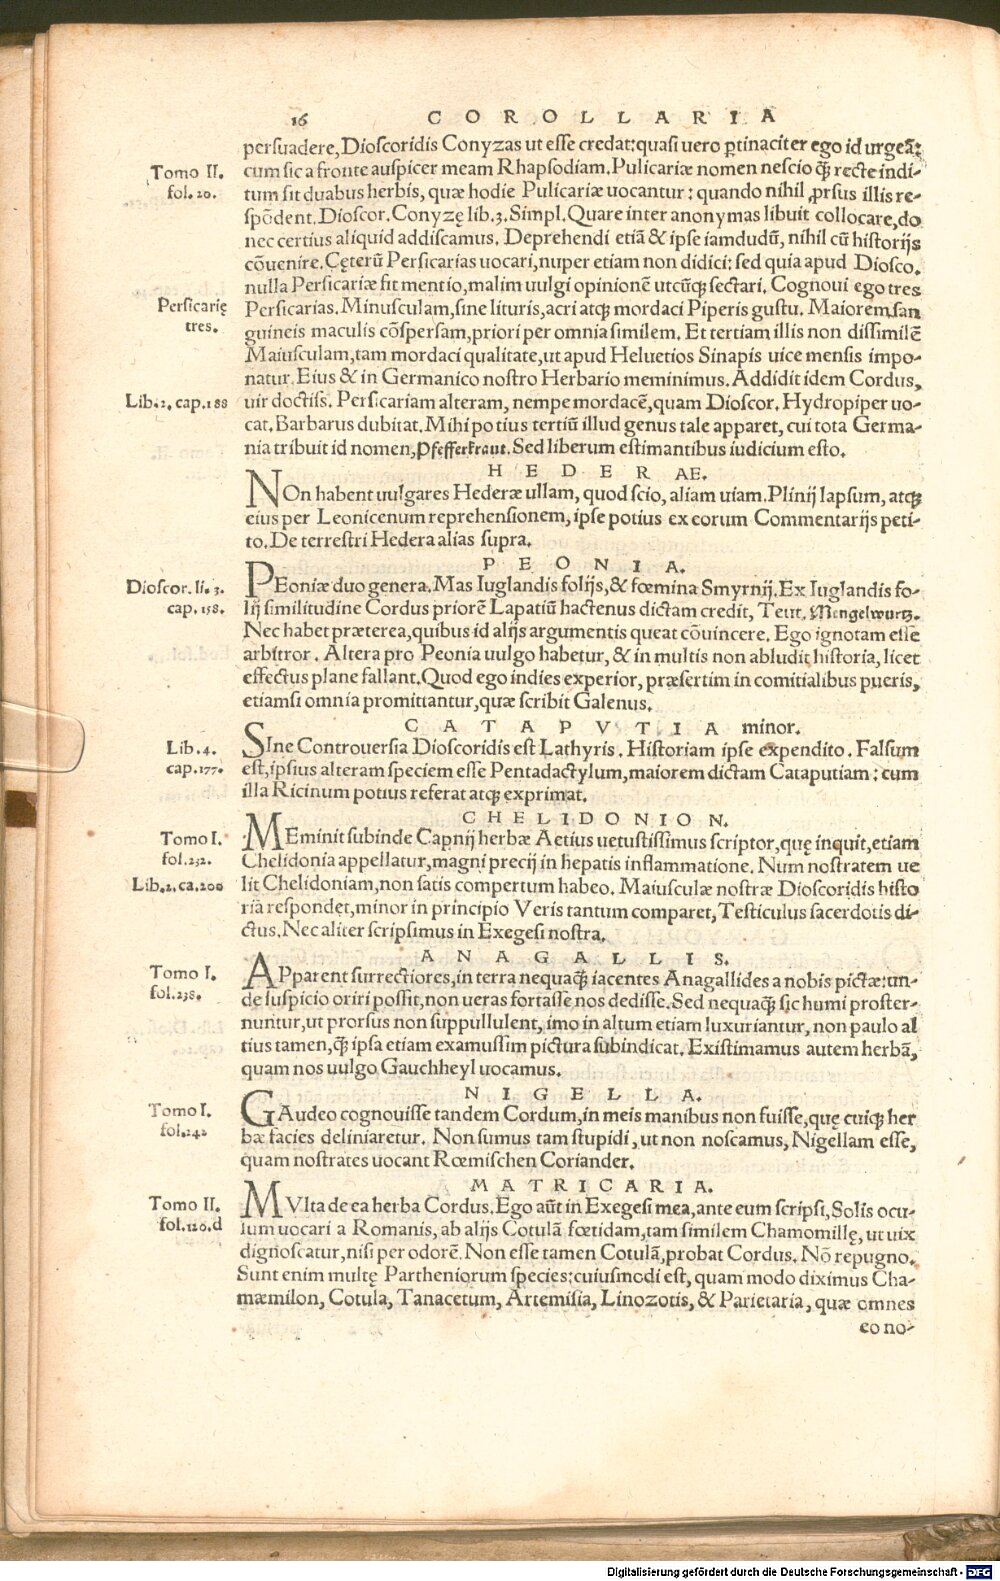 16 COROLLARIA
persuadere, Dioscoridis Conyzas ut esse credat: quasi uero ꝑtinaciter ego id urgeã:
Tomo II.
fol. 20.
cum sic a fronte auspicer meam Rhapsodiam. Pulicariæ nomen nescio ꝙ̃ recte indi-
tum sit duabus herbis, quæ hodie Pulicariæ uocantur: quando nihil ꝓrsus illis re-
spõdent. Dioscor. Conyzę lib. 3. Simpl. Quare inter anonymas libuit collocare, do
nec certius aliquid addiscamus. Deprehendi etiã & ipse iamdudũ, nihil cũ historijs
cõuenire. Cęterũ Persicarias uocari, nuper etiam non didici: sed quia apud Diosco.
nulla Persicariæ fit mentio, malim uulgi opinionẽ utcũq; sectari. Cognoui ego tres
Persicarię
tres.
Persicarias. Minusculam, sine lituris, acri atq; mordaci Piperis gustu. Maiorem, san
guineis maculis cõspersam, priori per omnia similem. Et tertiam illis non dissimilẽ
Maiusculam, tam mordaci qualitate, ut apud Heluetios Sinapis uice mensis impo-
natur. Eius & in Germanico nostro Herbario meminimus. Addidit idem Cordus,
Lib. 2. cap. 188
uir doctiss. Persicariam alteram, nempe mordacẽ, quam Dioscor. Hydropiper uo-
cat. Barbarus dubitat. Mihi potius tertiũ illud genus tale apparet, cui tota Germa-
nia tribuit id nomen, Pfefferkraut. Sed liberum estimantibus iudicium esto.
HEDERAE.
NOn habent uulgares Hederæ ullam, quod scio, aliam uiam. Plinij lapsum, atq;
eius per Leonicenum reprehensionem, ipse potius ex eorum Commentarijs peti-
to. De terrestri Hedera alias supra.
PEONIA.
Dioscor. li. 3.
cap. 158.
PEoniæ duo genera. Mas Iuglandis folijs, & fœmina Smyrnij. Ex Iuglandis fo-
lij similitudine Cordus priorẽ Lapatiũ hactenus dictam credit, Teut. Mengelwurtz.
Nec habet præterea, quibus id alijs argumentis queat cõuincere. Ego ignotam esse
arbitror. Altera pro Peonia uulgo habetur, & in multis non abludit historia, licet
effectus plane fallant. Quod ego indies experior, præsertim in comitialibus pueris,
etiamsi omnia promittantur, quæ scribit Galenus.
CATAPVTIA minor.
Lib. 4.
cap. 177.
SIne Controuersia Dioscoridis est Lathyris. Historiam ipse expendito. Falsum
est, ipsius alteram speciem esse Pentadactylum, maiorem dictam Cataputiam: cum
illa Ricinum potius referat atq; exprimat.
CHELIDONION.
Tomo I.
fol. 232.
Lib. 2. ca. 200
MEminit subinde Capnij herbæ Aetius uetustissimus scriptor, quę inquit, etiam
Chelidonia appellatur, magni precij in hepatis inflammatione. Num nostratem ue
lit Chelidoniam, non satis compertum habeo. Maiusculæ nostræ Dioscoridis histo
riã respondet, minor in principio Veris tantum comparet, Testiculus sacerdotis di-
ctus. Nec aliter scripsimus in Exegesi nostra.
ANAGALLIS.
Tomo I.
fol. 238.
APparent surrectiores, in terra nequaꝙ̃ iacentes Anagallides a nobis pictæ: un-
de suspicio oriri possit, non ueras fortasse nos dedisse. Sed nequaꝙ̃ sic humi proster-
nuntur, ut prorsus non suppullulent, imo in altum etiam luxuriantur, non paulo al
tius tamen, ꝙ̃ ipsa etiam examussim pictura subindicat. Existimamus autem herbã,
quam nos uulgo Gauchheyl uocamus.
NIGELLA.
Tomo I.
fol. 242
GAudeo cognouisse tandem Cordum, in meis manibus non fuisse, quę cuiq; her
bæ facies deliniaretur. Non sumus tam stupidi, ut non noscamus, Nigellam esse,
quam nostrates uocant Rœmischen Coriander.
MATRICARIA.
Tomo II.
fol. 120. d
MVlta de ea herba Cordus. Ego aũt in Exegesi mea, ante eum scripsi, Solis ocu-
lum uocari a Romanis, ab alijs Cotulã fœtidam, tam similem Chamomillę, ut uix
dignoscatur, nisi per odorẽ. Non esse tamen Cotulã, probat Cordus. Nõ repugno.
Sunt enim multę Partheniorum species: cuiusmodi est, quam modo diximus Cha-
mæmilon, Cotula, Tanacetum, Artemisia, Linozotis, & Parietaria, quæ omnes
eo no-
Digitalisierung gefördert durch die Deutsche Forschungsgemeinschaft - DFG